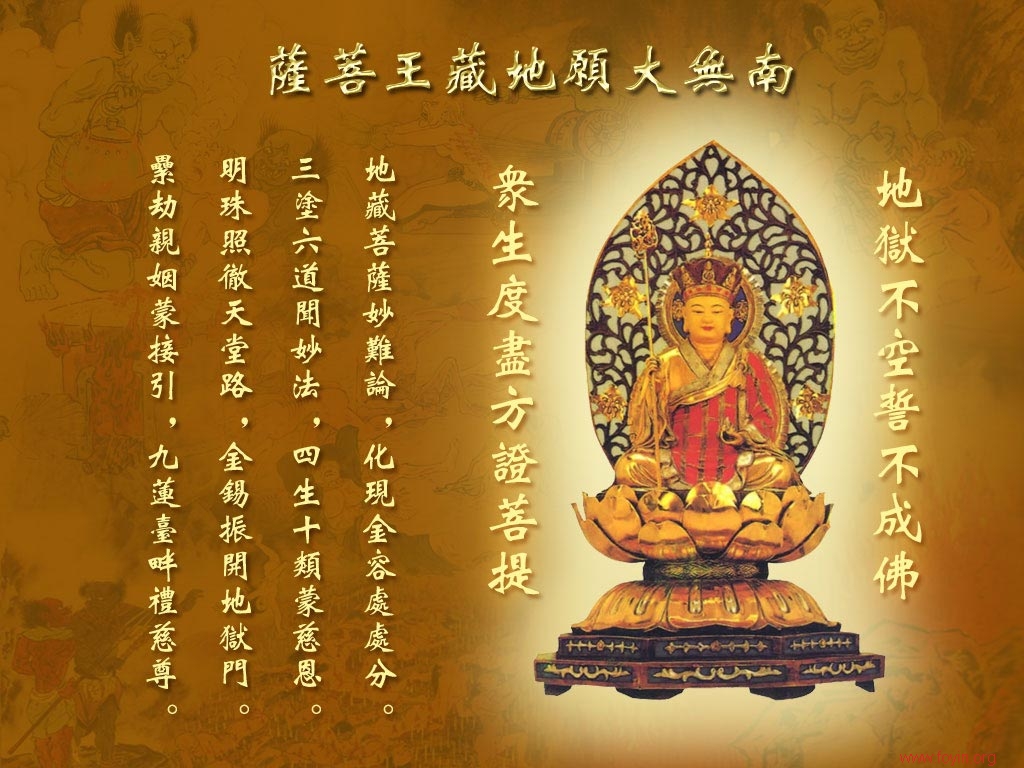 南無大願地藏王菩薩
地獄不空誓不成佛
衆生度盡方證菩提
地藏菩薩妙難論，化現金容處處分。
三塗六道聞妙法，四生十類蒙慈恩。
明珠照徹天堂路，金錫振開地獄門。
纍劫親姻蒙接引，九蓮臺畔禮慈尊。